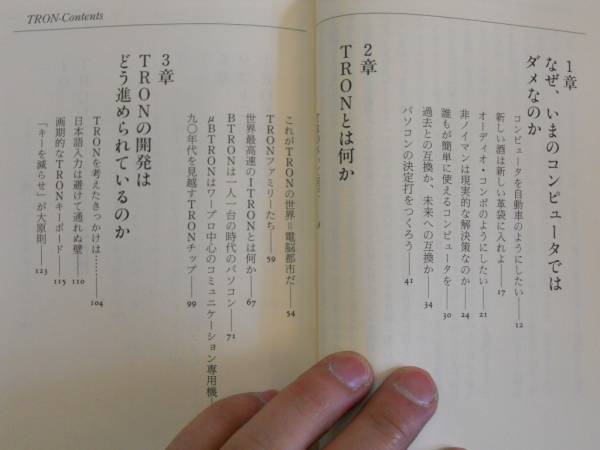 TRON-Contents
1章
なぜ、いまのコンピュータでは
ダメなのか
コンピュータを自動車のようにしたい——12
新しい酒は新しい革袋に入れよ——17
オーディオ・コンポのようにしたい——21
非ノイマンは現実的な解決策なのか——24
誰もが簡単に使えるコンピュータを——30
過去との互換か、未来への互換か——34
パソコンの決定打をつくろう——41
2章
TRONとは何か
これがTRONの世界=電脳都市だ——54
TRONファミリーたち——59
世界最高速のITRONとは何か——67
BTRONは一人一台の時代のパソコン——71
μBTRONはワープロ中心のコミュニケーション専用機
九〇年代を見越すTRONチップ——99
3章
TRONの開発は
どう進められているのか
TRONを考えたきっかけは………104
日本語入力は避けて通れぬ壁——110
画期的なTRONキーボード——115
「キーを減らせ」が大原則——123